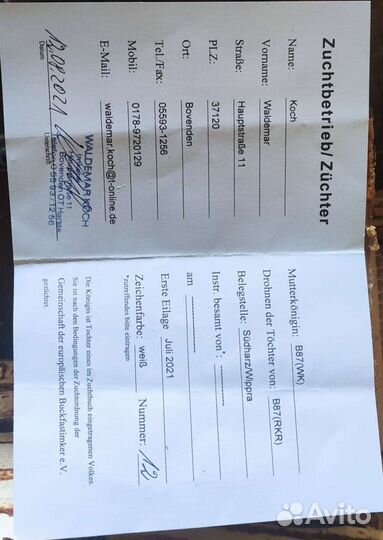 Zuchtbetrieb/Züchter
Name: Koch
Vorname: Waldemar
Straße: Hauptstraße 11
PLZ: 37120
Ort: Bovenden
Tel./Fax: 05593-1256
Mobil: 0178-9720129
E-Mail: waldemar.koch@t-online.de
WALDEMAR KOCH
Bovenden OT Harste
12.08.2021
Datum
Unterschrift
Mutterkönigin: B87(WK)
Drohnen der Töchter von: B87(RKR)
Belegstelle: Südharz/Wippra
Instr. besamt von*:
am
Erste Eilage Juli 2021
Zeichenfarbe: weiß Nummer: 12
*zutreffendes bitte eintragen
Die Königin ist Tochter eines im Zuchtbuch eingetragenen Volkes.
Sie ist nach den Bedingungen der Zuchtordnung der
Gemeinschaft der europäischen Buckfastimker e.V.
gezüchtet.
Avito